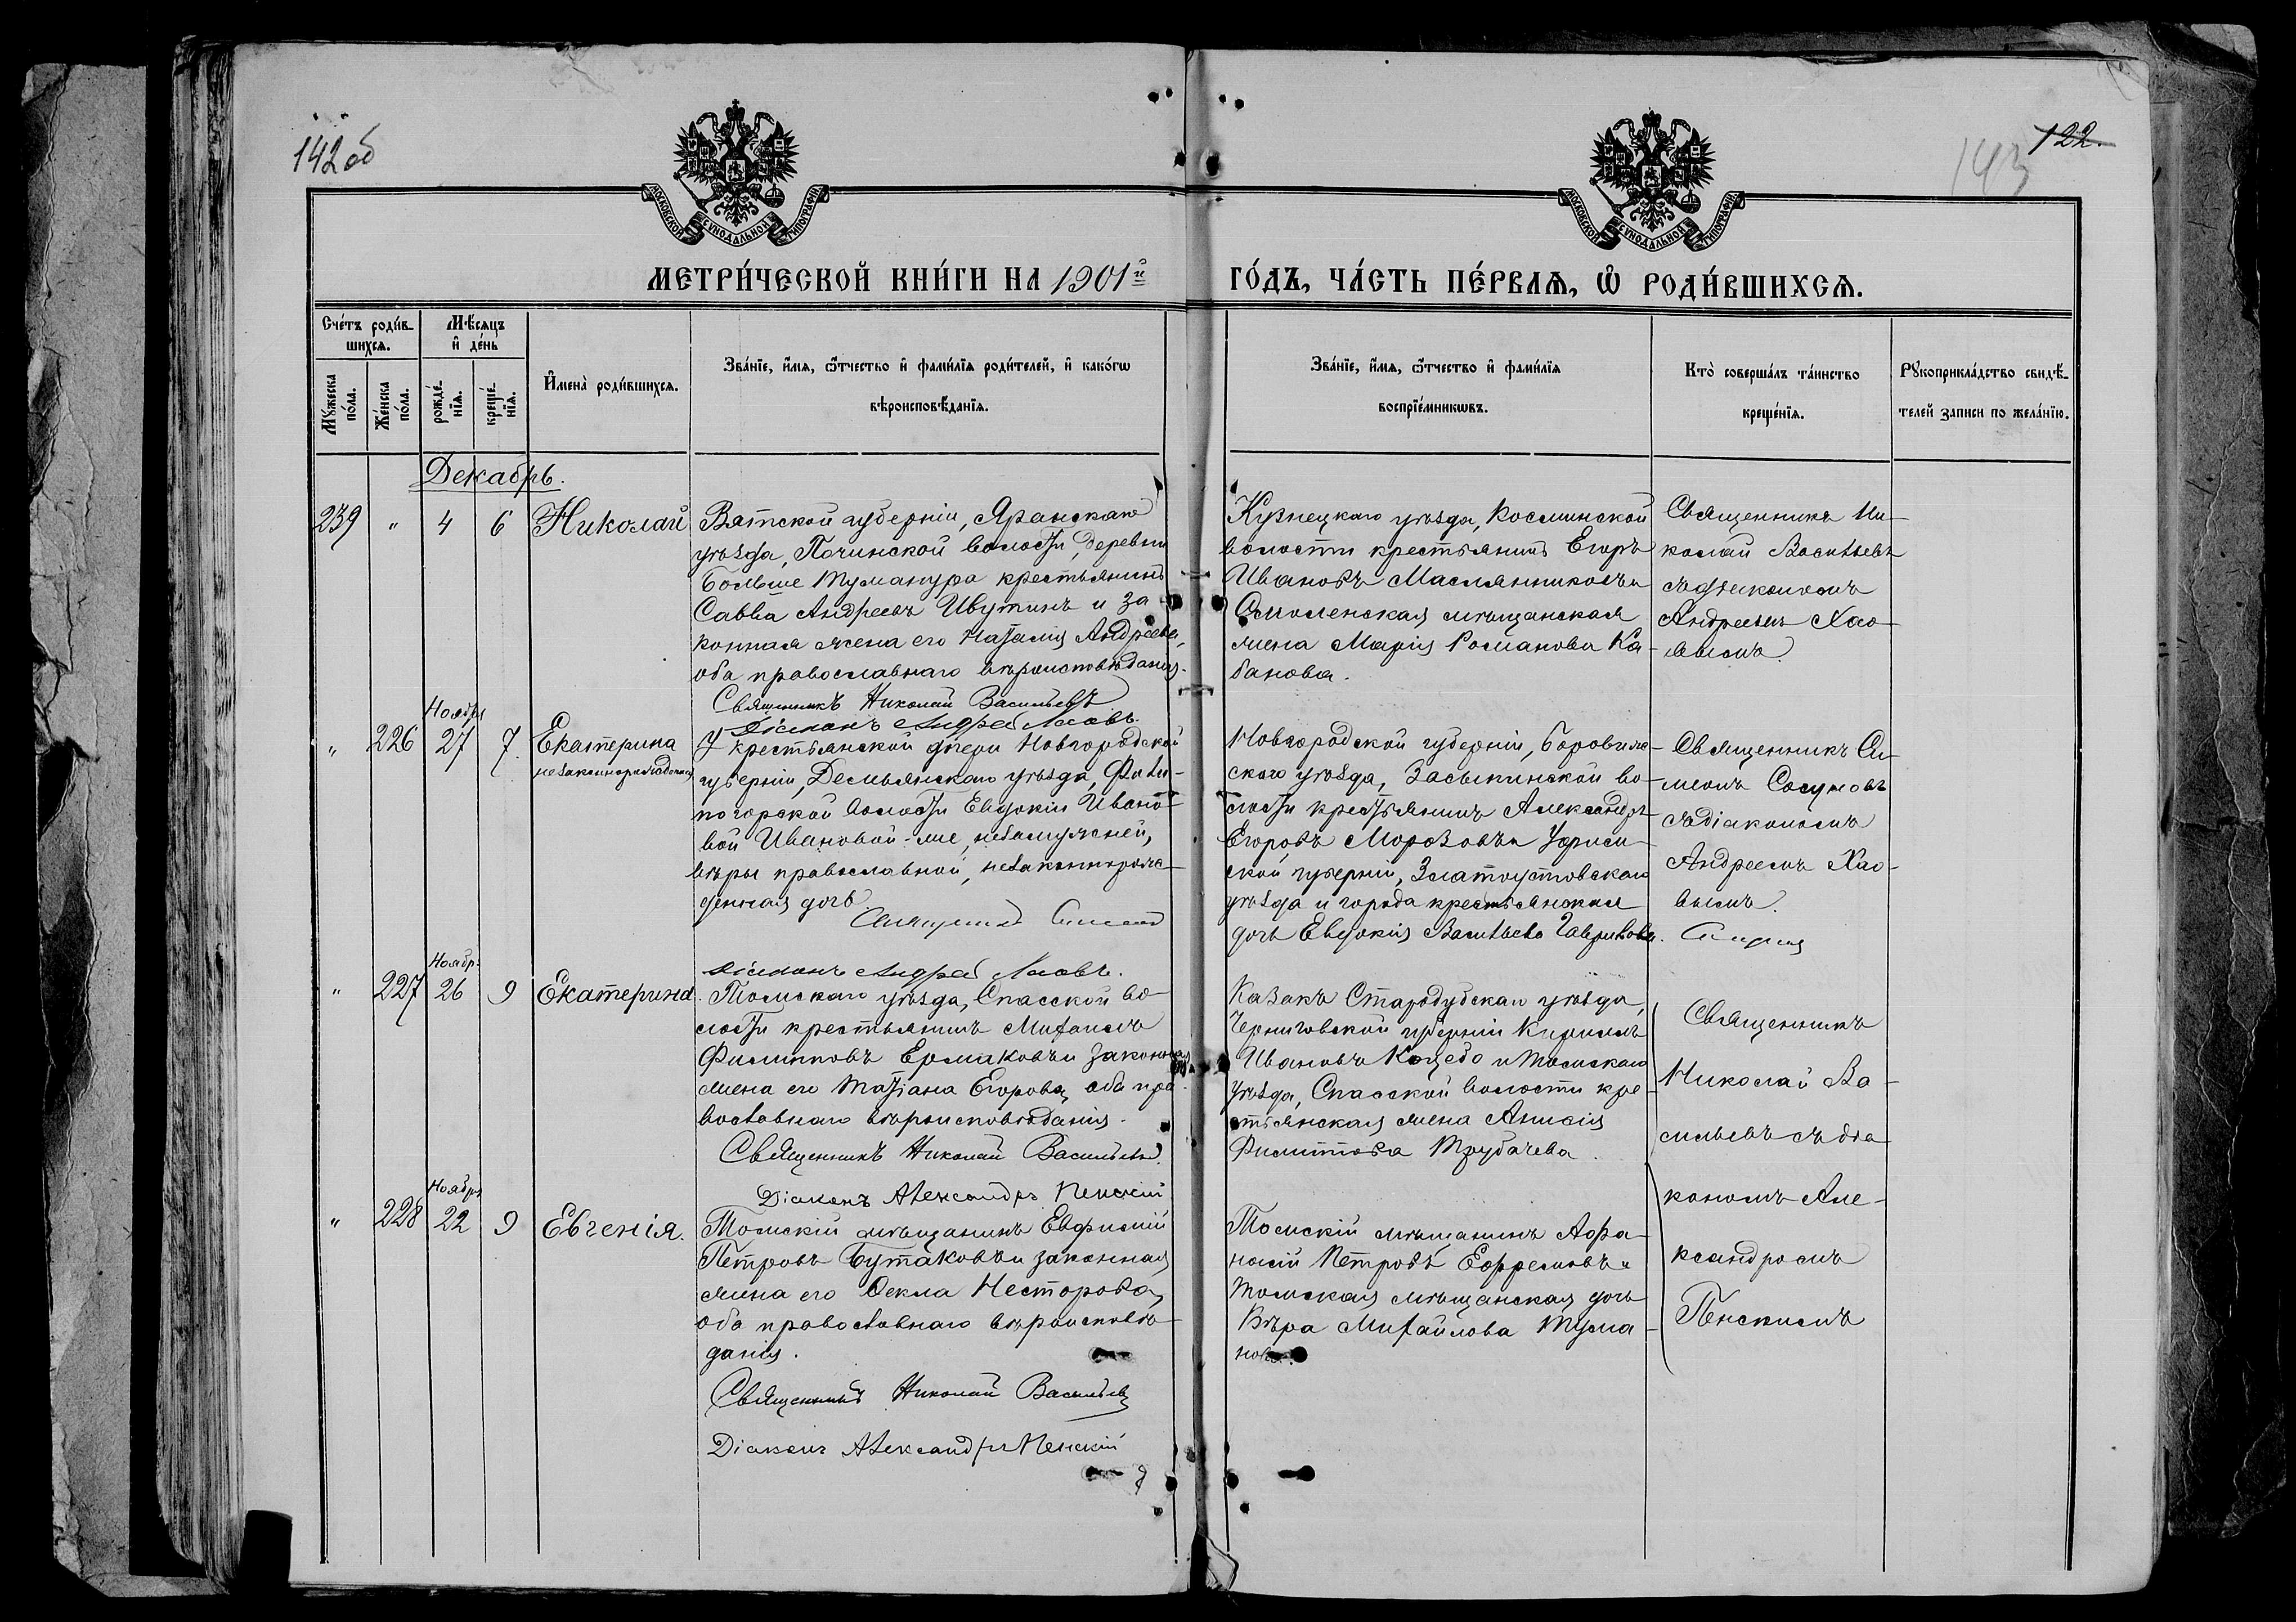 142 об
122.
143
МОСКОВСКОЙ СѴНОДАЛЬНОЙ ТИПОГРАФІИ
МОСКОВСКОЙ СѴНОДАЛЬНОЙ ТИПОГРАФІИ
МЕТРИ́ЧЕСКОЙ КНИ́ГИ НА 1901й
ГО́ДЪ, ЧА́СТЬ ПЕ́РВАѦ, Ѡ҆ РОДИ́ВШИХСѦ.
Сче́тъ роди́в-
шихсѧ.
Мѣ́сѧцъ
и҆ де́нь
Мꙋ́жеска
по́ла.
Же́нска
по́ла.
рожде́-
нїѧ.
креще́-
нїѧ.
И҆мена̀ роди́вшихсѧ.
Зва́нїе, и҆́мѧ, ѻ҆́тчество и҆ фами́лїѧ роди́телей, и҆ како́гѡ
вѣроисповѣ́данїѧ.
Зва́нїе, и҆́мѧ, ѻ҆́тчество и҆ фами́лїѧ
воспрїе́мникѡвъ.
Кто̀ соверша́лъ та́инство
креще́нїѧ.
Рꙋкоприкла́дство свидѣ́-
телей записи по жела́нїю.
Декабрь.
239 " 4 6 Николай
Вятской губерніи, Яранскаго
уѣзда, Починской волости, деревни
Больше Туманура крестьянинъ
Савва Андреевъ Ивутинъ и за
конная жена его Наталія Андреева,
оба православнаго вѣроисповѣданія.
Священникъ Николай Васильевъ
Діаконъ Андрей Хаовъ.
Кузнецкаго уѣзда, Косьминской
волости крестьянинъ Егоръ
Ивановъ Маслянниковъ и
Смоленская мѣщанская
жена Марія Романова Ка-
банова.
Священникъ Ни-
колай Васильевъ
съ діакономъ
Андреемъ Хао-
вымъ.
" 226 Ноября 27 7 Екатерина
незаконнорожденная
У крестьянской дщери Новгородской
губерніи, Демьянскаго уѣзда, Фили-
погорской волости Евдокіи Ивано-
вой Ивановой-же, незамужней,
вѣры православной, незаконнорож-
денная дочь.
Діаконъ Андрей Хаовъ.
Новгородской губерніи, Борович-
скаго уѣзда, Засыпинской во-
лости крестьянинъ Александръ
Егоровъ Морозовъ и Уфим-
ской губерніи, Златоустовскаго
уѣзда и города крестьянская
дочь Евдокія Васильева Гаврилова.
Священникъ Си-
меонъ Сосуновъ
съ діакономъ
Андреемъ Хао-
вымъ.
" 227 Ноябр. 26 9 Екатерина.
Томскаго уѣзда, Спасской во-
лости крестьянинъ Михаилъ
Филипповъ Ермаковъ и законная
жена его Татіана Егорова, оба пра-
вославнаго вѣроисповѣданія.
Священникъ Николай Васильевъ.
Діаконъ Александръ Пенскій
Казакъ Стародубскаго уѣзда,
Черниговской губерніи Кириллъ
Ивановъ Коцебо и Томскаго
уѣзда, Спасской волости кре-
стьянская жена Анисія
Филиппова Трубачева.
Священникъ
Николай Ва-
сильевъ съ діа-
кономъ Але-
ксандромъ
Пенскимъ
" 228 Ноябрь 22 9 Евгенія.
Томскій мѣщанинъ Евфимій
Петровъ Бутаковъ и законная
жена его Ѳекла Несторова,
оба православнаго вѣроисповѣ-
данія.
Священникъ Николай Васильевъ
Діаконъ Александръ Пенскій
Томскій мѣщанинъ Афа-
насій Петровъ Ефремовъ и
Томская мѣщанская дочь
Вѣра Михайлова Тума-
нова.